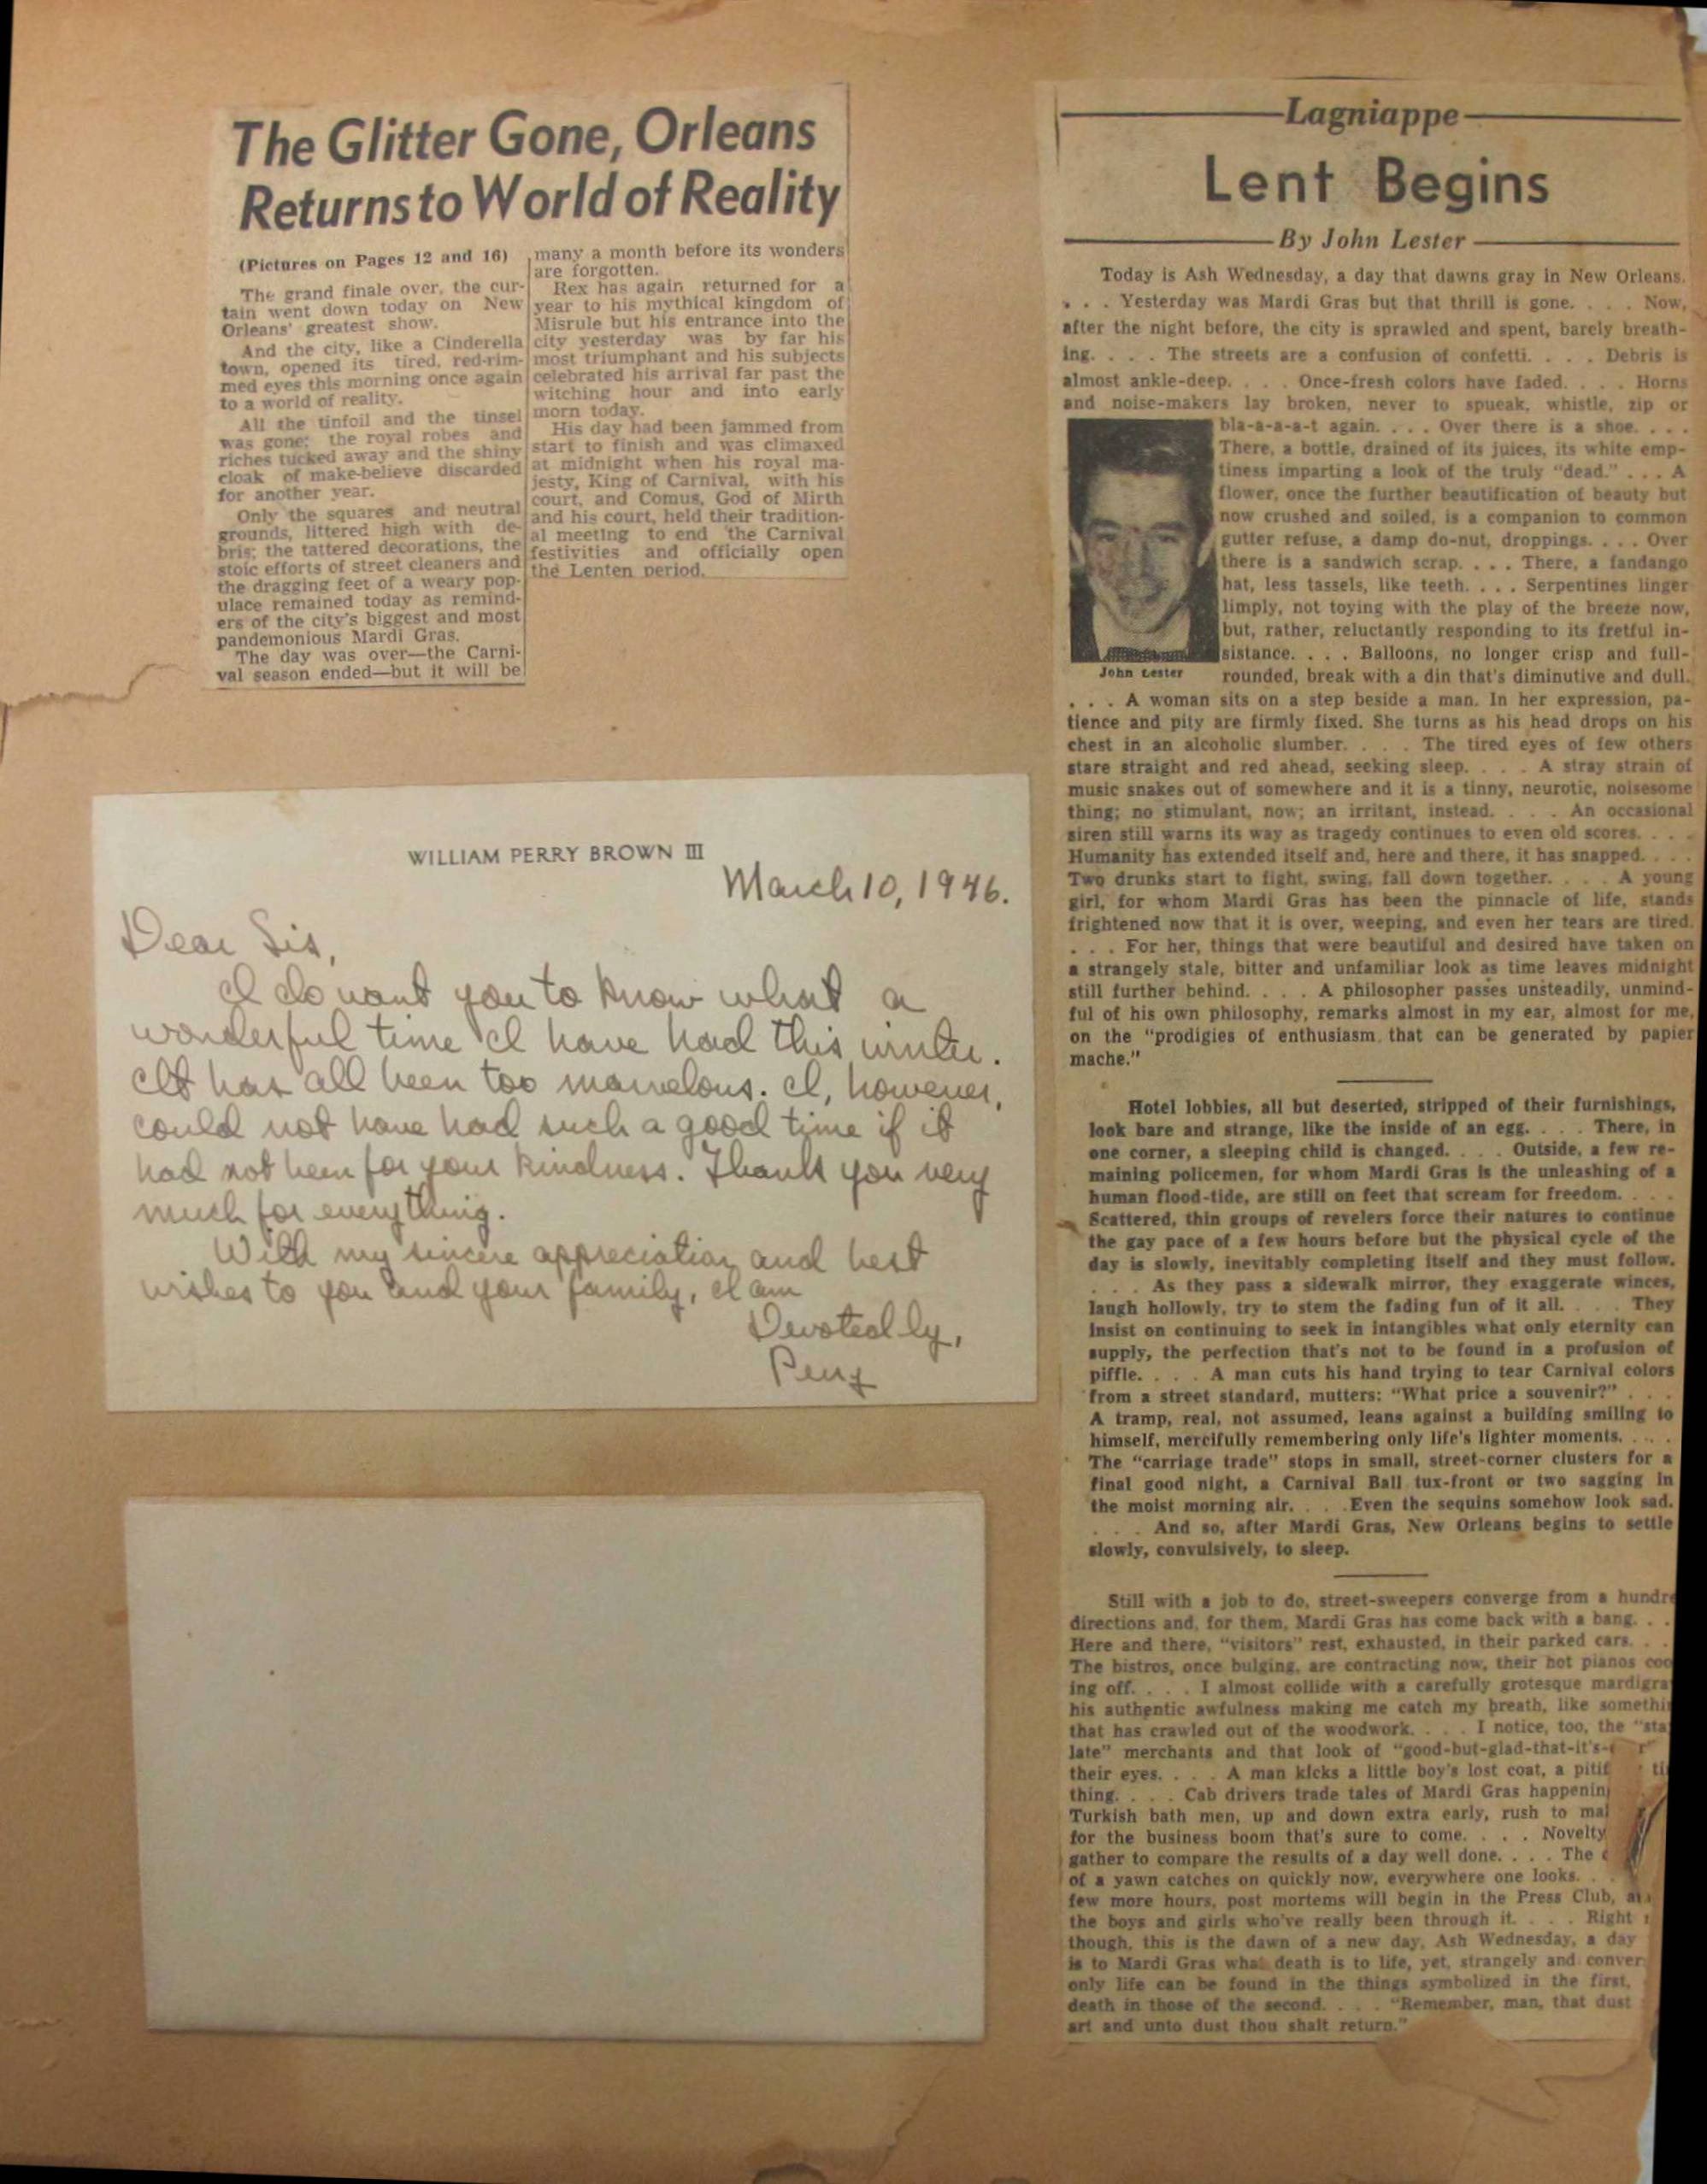 The Glitter Gone, Orleans
Returns to World of Reality
(Pictures on Pages 12 and 16)
The grand finale over, the cur-
tain went down today on New
Orleans' greatest show.
And the city, like a Cinderella
town, opened its tired, red-rim-
med eyes this morning once again
to a world of reality.
All the tinfoil and the tinsel
was gone; the royal robes and
riches tucked away and the shiny
cloak of make-believe discarded
for another year.
Only the squares and neutral
grounds, littered high with de-
bris; the tattered decorations, the
stoic efforts of street cleaners and
the dragging feet of a weary pop-
ulace remained today as remind-
ers of the city's biggest and most
pandemonious Mardi Gras.
The day was over—the Carni-
val season ended—but it will be
many a month before its wonders
are forgotten.
Rex has again returned for a
year to his mythical kingdom of
Misrule but his entrance into the
city yesterday was by far his
most triumphant and his subjects
celebrated his arrival far past the
witching hour and into early
morn today.
His day had been jammed from
start to finish and was climaxed
at midnight when his royal ma-
jesty, King of Carnival, with his
court, and Comus, God of Mirth
and his court, held their tradition-
al meeting to end the Carnival
festivities and officially open
the Lenten period.
WILLIAM PERRY BROWN III
March 10, 1946.
Dear Sis,
I do want you to know what a
wonderful time I have had this winter.
It has all been too marvelous. I, however,
could not have had such a good time if it
had not been for your kindness. Thank you very
much for everything.
With my sincere appreciation and best
wishes to you and your family, I am
Devotedly,
Perry
Lagniappe
Lent Begins
By John Lester
Today is Ash Wednesday, a day that dawns gray in New Orleans.
. . . Yesterday was Mardi Gras but that thrill is gone. . . . Now,
after the night before, the city is sprawled and spent, barely breath-
ing. . . . The streets are a confusion of confetti. . . . Debris is
almost ankle-deep. . . . Once-fresh colors have faded. . . . Horns
and noise-makers lay broken, never to spueak, whistle, zip or
bla-a-a-a-t again. . . . Over there is a shoe. . . .
There, a bottle, drained of its juices, its white emp-
tiness imparting a look of the truly "dead." . . . A
flower, once the further beautification of beauty but
now crushed and soiled, is a companion to common
gutter refuse, a damp do-nut, droppings. . . . Over
there is a sandwich scrap. . . . There, a fandango
hat, less tassels, like teeth. . . . Serpentines linger
limply, not toying with the play of the breeze now,
but, rather, reluctantly responding to its fretful in-
sistance. . . . Balloons, no longer crisp and full-
John Lester
rounded, break with a din that's diminutive and dull.
. . . A woman sits on a step beside a man. In her expression, pa-
tience and pity are firmly fixed. She turns as his head drops on his
chest in an alcoholic slumber. . . . The tired eyes of few others
stare straight and red ahead, seeking sleep. . . . A stray strain of
music snakes out of somewhere and it is a tinny, neurotic, noisesome
thing; no stimulant, now; an irritant, instead. . . . An occasional
siren still warns its way as tragedy continues to even old scores. . . .
Humanity has extended itself and, here and there, it has snapped. . . .
Two drunks start to fight, swing, fall down together. . . . A young
girl, for whom Mardi Gras has been the pinnacle of life, stands
frightened now that it is over, weeping, and even her tears are tired.
. . . For her, things that were beautiful and desired have taken on
a strangely stale, bitter and unfamiliar look as time leaves midnight
still further behind. . . . A philosopher passes unsteadily, unmind-
ful of his own philosophy, remarks almost in my ear, almost for me,
on the "prodigies of enthusiasm that can be generated by papier
mache."
Hotel lobbies, all but deserted, stripped of their furnishings,
look bare and strange, like the inside of an egg. . . . There, in
one corner, a sleeping child is changed. . . . Outside, a few re-
maining policemen, for whom Mardi Gras is the unleashing of a
human flood-tide, are still on feet that scream for freedom. . . .
Scattered, thin groups of revelers force their natures to continue
the gay pace of a few hours before but the physical cycle of the
day is slowly, inevitably completing itself and they must follow.
. . . As they pass a sidewalk mirror, they exaggerate winces,
laugh hollowly, try to stem the fading fun of it all. . . . They
insist on continuing to seek in intangibles what only eternity can
supply, the perfection that's not to be found in a profusion of
piffle. . . . A man cuts his hand trying to tear Carnival colors
from a street standard, mutters: "What price a souvenir?" . . .
A tramp, real, not assumed, leans against a building smiling to
himself, mercifully remembering only life's lighter moments. . . .
The "carriage trade" stops in small, street-corner clusters for a
final good night, a Carnival Ball tux-front or two sagging in
the moist morning air. . . . Even the sequins somehow look sad.
. . . And so, after Mardi Gras, New Orleans begins to settle
slowly, convulsively, to sleep.
Still with a job to do, street-sweepers converge from a hundre
directions and, for them, Mardi Gras has come back with a bang. . .
Here and there, "visitors" rest, exhausted, in their parked cars. . .
The bistros, once bulging, are contracting now, their hot pianos coo
ing off. . . . I almost collide with a carefully grotesque mardigra
his authentic awfulness making me catch my breath, like somethi
that has crawled out of the woodwork. . . . I notice, too, the "sta
late" merchants and that look of "good-but-glad-that-it's-
their eyes. . . . A man kicks a little boy's lost coat, a pitif
thing. . . . Cab drivers trade tales of Mardi Gras happenin
Turkish bath men, up and down extra early, rush to ma
for the business boom that's sure to come. . . . Novelty
gather to compare the results of a day well done. . . . The
of a yawn catches on quickly now, everywhere one looks. .
few more hours, post mortems will begin in the Press Club,
the boys and girls who've really been through it. . . . Right
though, this is the dawn of a new day, Ash Wednesday, a day
is to Mardi Gras what death is to life, yet, strangely and conver
only life can be found in the things symbolized in the first,
death in those of the second. . . . "Remember, man, that dust
art and unto dust thou shalt return."